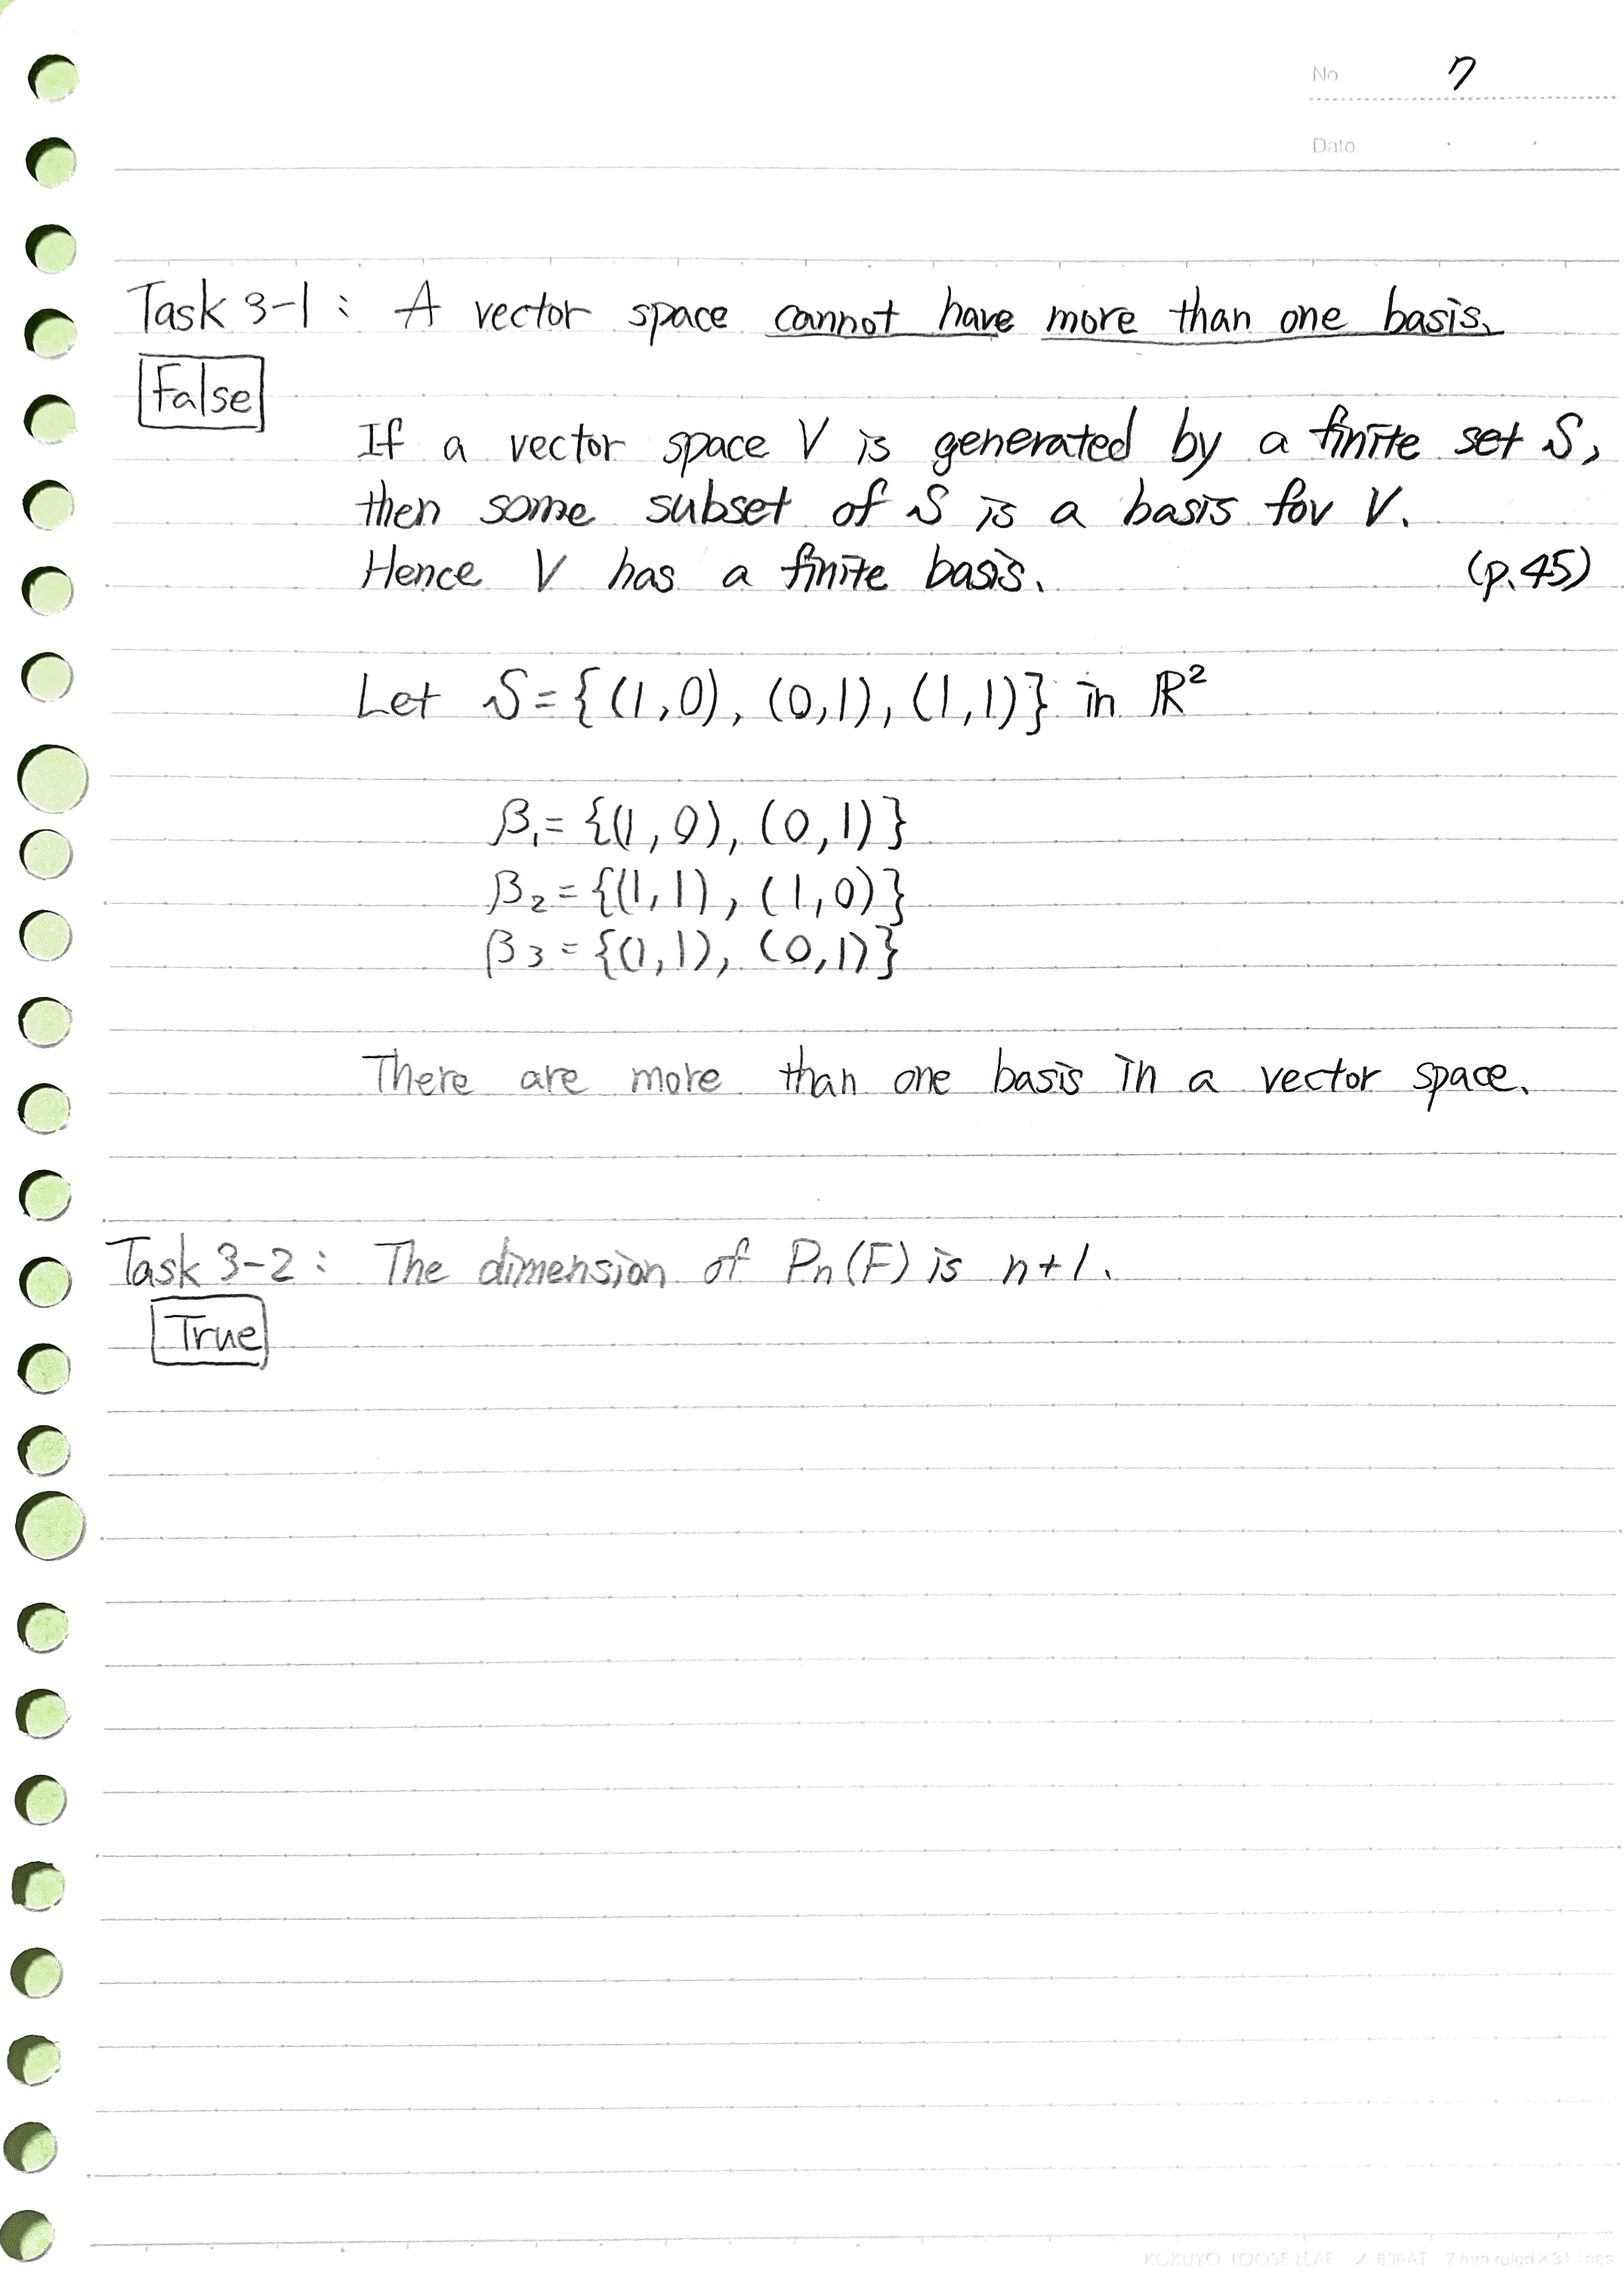 No. 7
Date
Task 3-1: A vector space cannot have more than one basis.
False
If a vector space V is generated by a finite set S,
then some subset of S is a basis for V.
Hence V has a finite basis. (p.45)
Let S = {(1,0), (0,1), (1,1)} in ℝ²
β₁ = {(1,0), (0,1)}
β₂ = {(1,1), (1,0)}
β₃ = {(1,1), (0,1)}
There are more than one basis in a vector space.
Task 3-2: The dimension of Pₙ(F) is n+1.
True
KOKUYO LOOSE-LEAF ノ-836AT 7 mm ruled × 31 lines